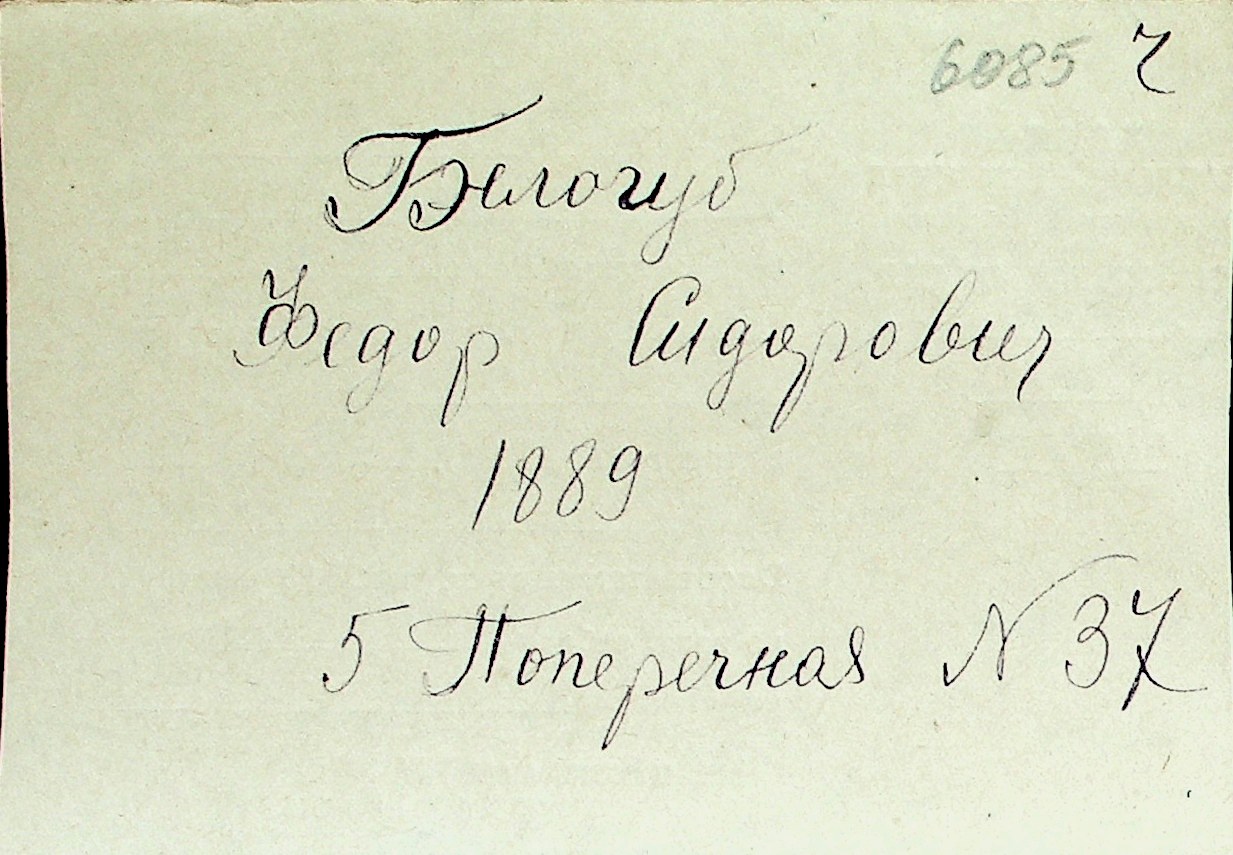 6085 ч
Белогуб
Федор Сидорович
1889
5 Поперечная N 37